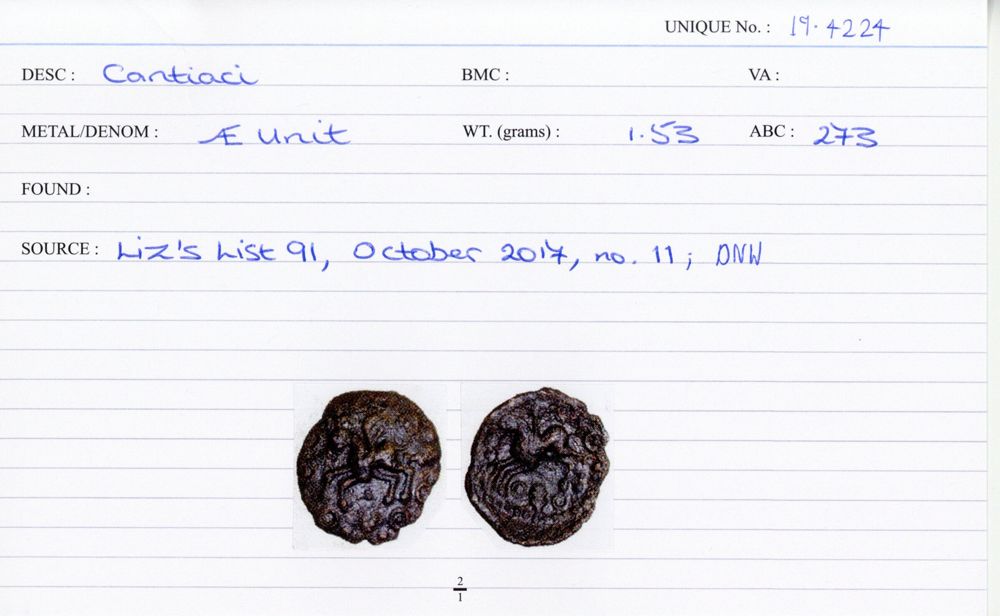 UNIQUE No. : 19.4224
DESC : Cantiaci BMC : VA :
METAL/DENOM : Æ Unit WT. (grams) : 1.53 ABC : 273
FOUND :
SOURCE : Liz's List 91, October 2017, no. 11 ; DNW
2
1